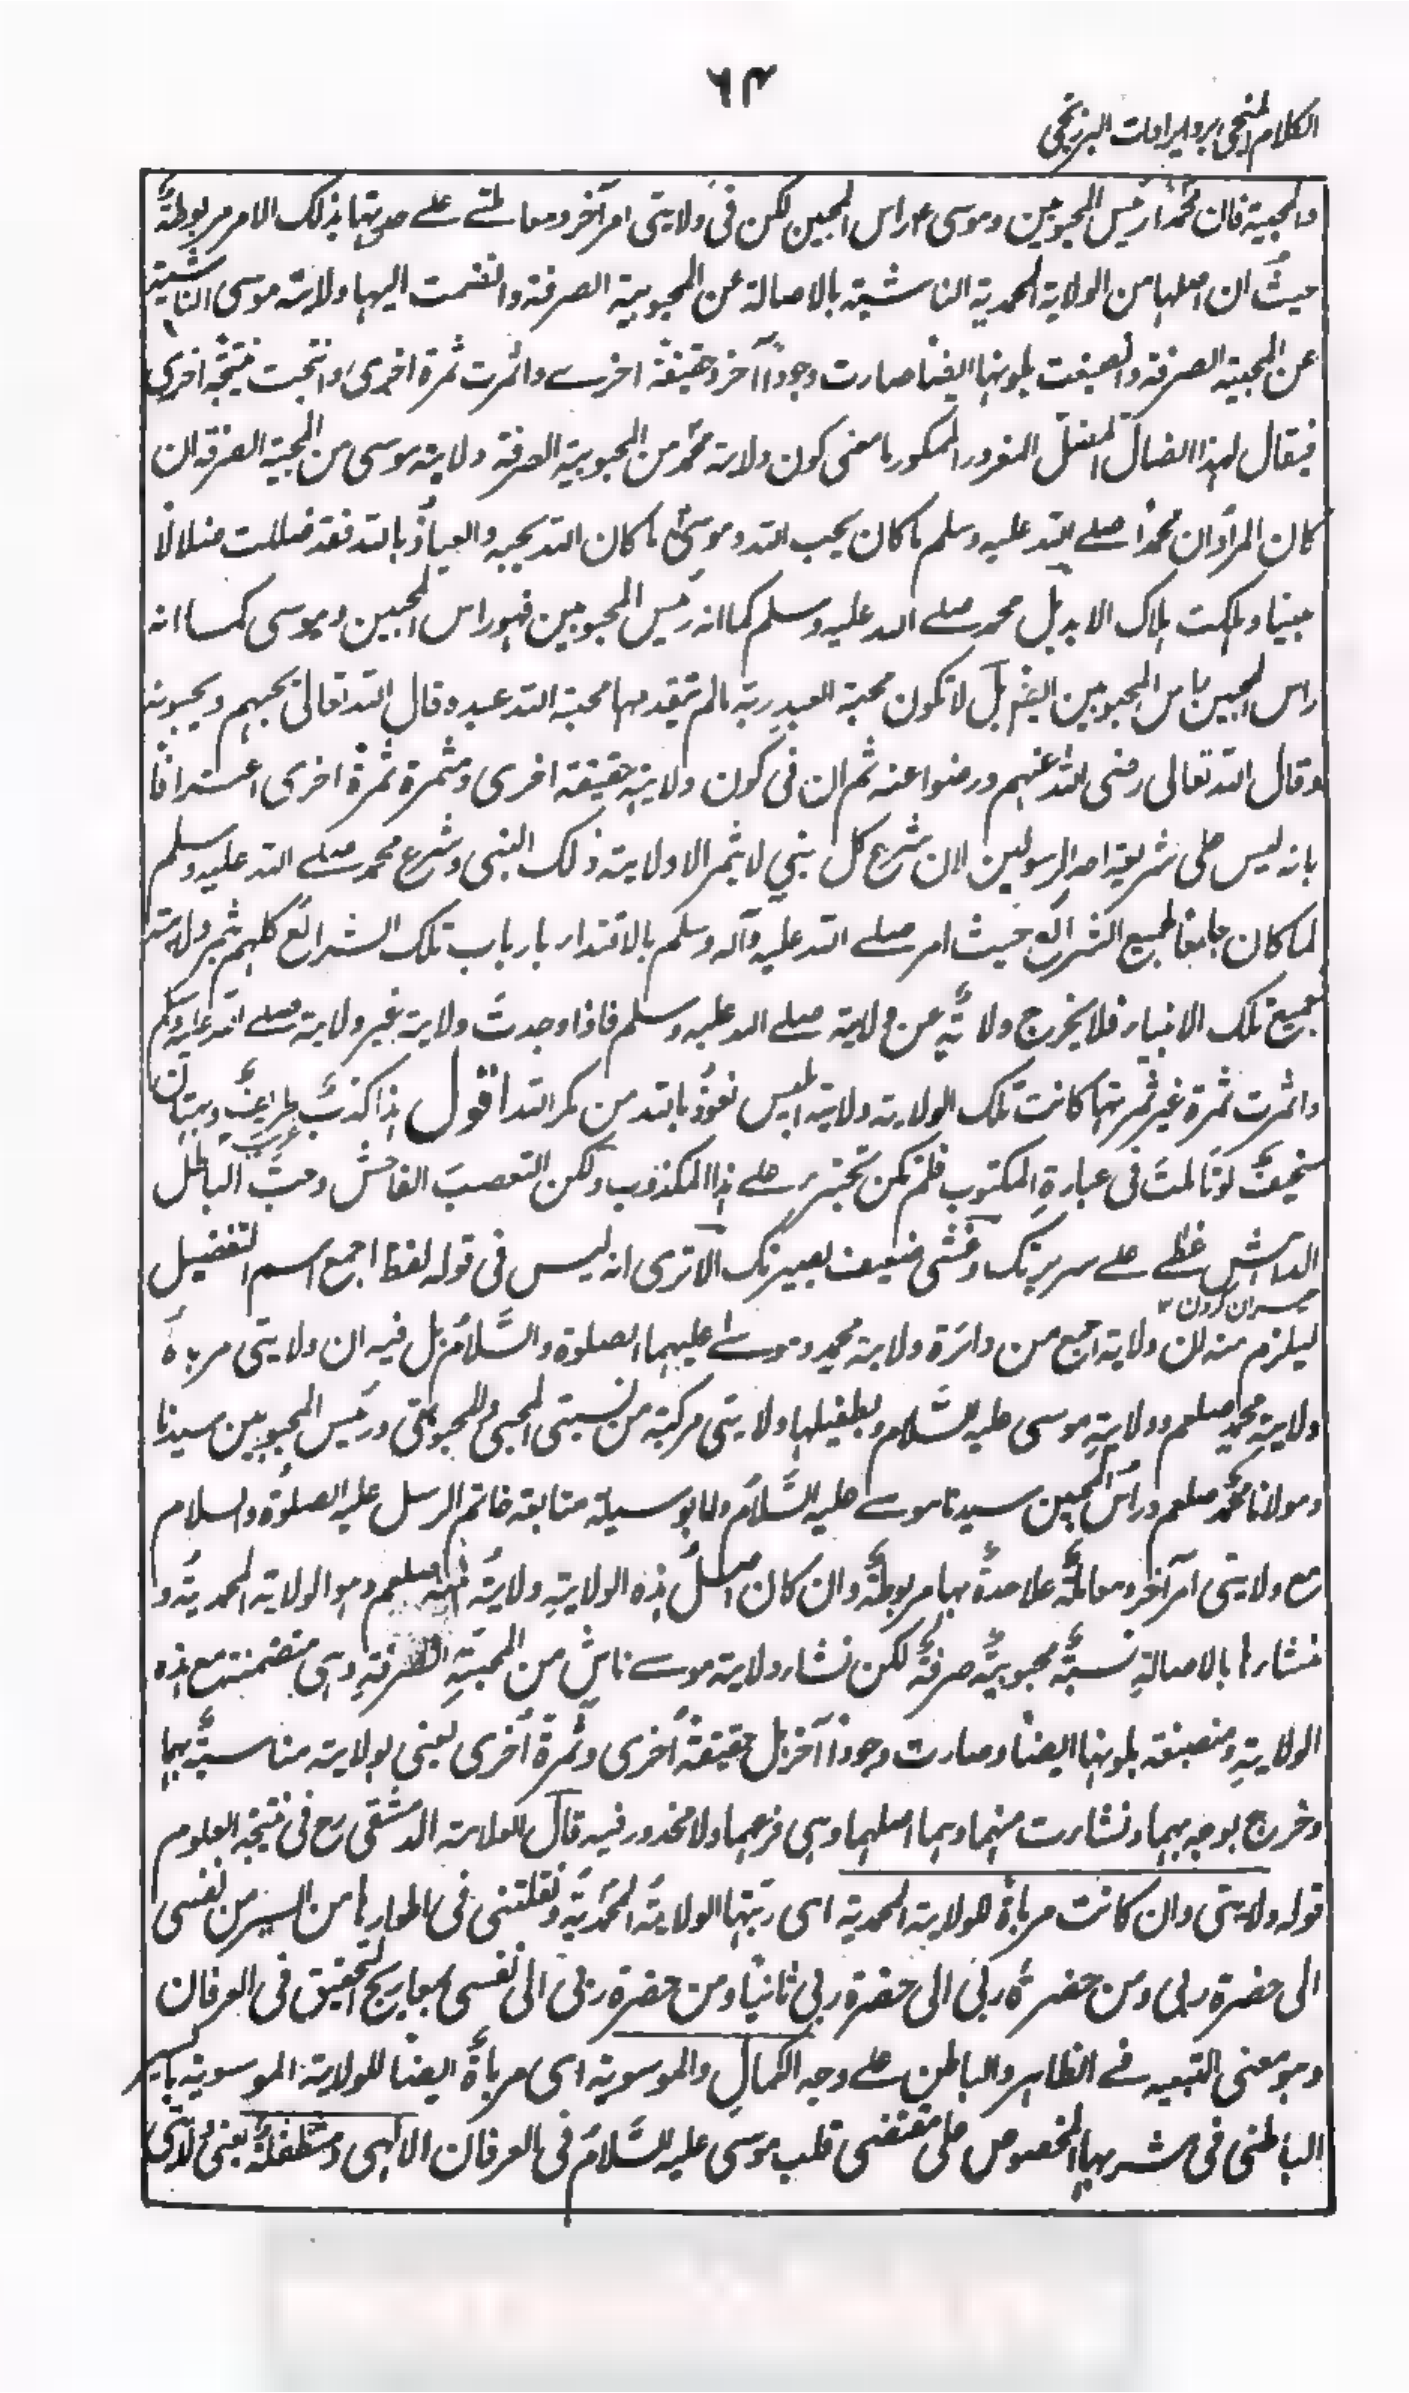 ٦٤
الكلام المنجي برد ايرادات البرزنجي
والمحبية فان محمدا رئيس المحبوبين وموسى راس المحبين لكن في ولايتي امر آخر ومعاملتي على حدتها بذلك الامر مربوطة
حيث ان اصلها من الولاية المحمدية الناشية بالاصالة عن المحبوبية الصرفة وانضمت اليها ولاية موسى الناشية
عن المحبية الصرفة وانصبغت بلونها ايضا صارت وجودا آخر وحقيقة اخرى واثمرت ثمرة اخرى وانتجت نتيجة اخرى
فيقال لهذا الضال المضل المغرور الممكور ما معنى كون ولاية محمد من المحبوبية الصرفة وولاية موسى من المحبية الصرفة ان
كان المراد ان محمدا صلے الله عليه وسلم ما كان يحب الله وموسى ما كان الله يحبه والعياذ بالله فقد ضللت ضلالا
مبينا وهلكت هلاك الابد بل محمد صلے الله عليه وسلم كما انه رئيس المحبوبين فهو راس المحبين وموسى كما انه
راس المحبين من المحبوبين ايضا بل لا تكون محبة العبد ربه ما لم تتقدمها محبة الله عبده قال الله تعالى يحبهم ويحبونه
وقال الله تعالى رضى الله عنهم ورضوا عنه ثم ان في كون ولايته حقيقة اخرى ومثمرة ثمرة اخرى اعترافا
بانه ليس على شريعة احد الرسولين لان شرع كل نبي لا يثمر الا ولاية ذلك النبى وشرع محمد صلے الله عليه وسلم
لما كان جامعا لجميع الشرائع حيث امر صلے الله عليه وآله وسلم بالاقتداء بارباب تلك الشرائع كلهم يثمر ولاية
جميع تلك الانبياء فلا يخرج ولاية عن ولاية صلے الله عليه وسلم فاذا وجدت ولاية غير ولاية صلے الله عليه وسلم
واثمرت ثمرة غير ثمرتها كانت تلك الولاية ولاية ابليس نعوذ بالله من مكر الله اقول هذا كذب طرايف وبهتان
سخيف لو تاملت في عبارة المكتوب فلم تكن تجترء على هذا المكذوب ولكن التعصب الفاحش وحب الباطل
الداهش غطے على سريرتك وغشى ضعيف بصيرتك الا ترى انه ليس في قوله لفظ اجمع اسم التفضيل
ليلزم منه ان ولاية اجمع من دائرة ولاية محمد وموسے عليهما الصلوة والسلام بل فيه ان ولايتى مرباة
ولاية محمد صلعم وولاية موسى عليه السلام وبطفيلها ولايتى مركبة من نسبتى المحبى والمحبوبى ورئيس المحبوبين سيدنا
ومولانا محمد صلعم وراس المحبين سيدنا موسے عليه السلام ولما بوسيلة متابعة خاتم الرسل عليه الصلوة والسلام
مع ولايتى امر آخر ومعاملة علاحدة بها مربوطة وان كان اصل هذه الولاية ولاية نبيه صلعم وهو الولاية المحمدية و
منشاءها بالاصالة نسبة محبوبية صرفة لكن نشاء ولاية موسے ناش من المحبية الصرفة وهى متضمنة مع هذه
الولاية ومنصبغة بلونها ايضا وصارت وجودا آخر بل حقيقة اخرى وثمرة اخرى يعنى لولايته مناسبة بهما
وخرج بوجه بهما ونشاءت منهما وهما اصلهما وهى فرعهما ولا محذور فيه قال العلامة الدمشقى رح في نتيجة العلوم
قوله ولايتى وان كانت مرباة للولاية المحمدية اى ربتها الولاية المحمدية ونقلتنى في اطوارها من السير من نفسى
الى حضرة ربى ومن حضرة ربى الى حضرة ربى ثانيا ومن حضرة ربى الى نفسى بمعاريج التحقيق فى العرفان
وهو معنى التبعيه فے الظاهر والباطن علے وجه الكمال والموسوية اى مرباة ايضا للولاية الموسوية بالسير
الباطنى فى مشربها المخصوص على مقتضى قلب موسى عليه السلام فى العرفان الالهى ومتطفلة يعنى لاتى